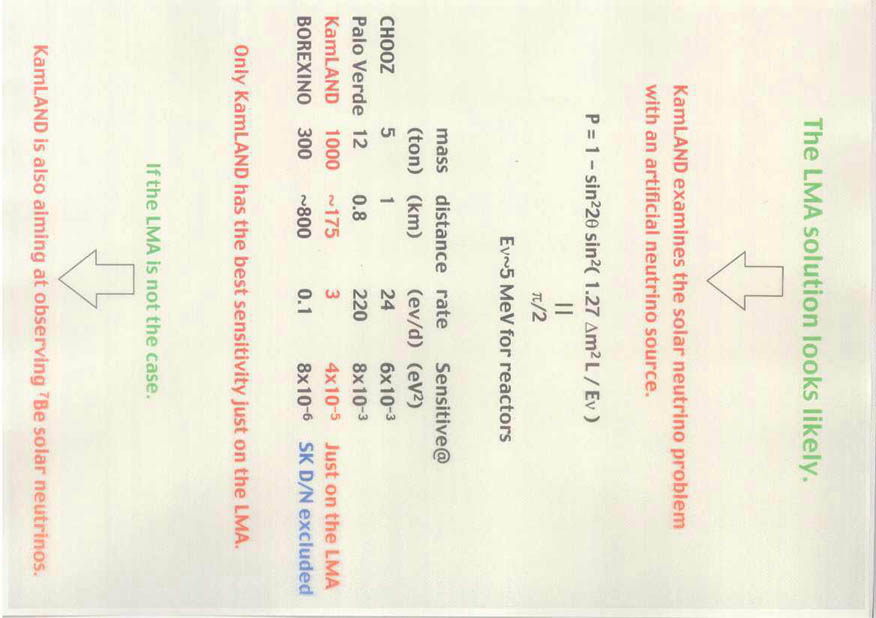 The LMA solution looks likely.
KamLAND examines the solar neutrino problem
with an artificial neutrino source.
P = 1 − sin²2θ sin²( 1.27 Δm² L / Eν )
||
π/2
Eν~5 MeV for reactors
mass distance rate Sensitive@
(ton) (km) (ev/d) (eV²)
CHOOZ 5 1 24 6x10⁻³
Palo Verde 12 0.8 220 8x10⁻³
KamLAND 1000 ~175 3 4x10⁻⁵ Just on the LMA
BOREXINO 300 ~800 0.1 8x10⁻⁶ SK D/N excluded
Only KamLAND has the best sensitivity just on the LMA.
If the LMA is not the case.
KamLAND is also aiming at observing ⁷Be solar neutrinos.